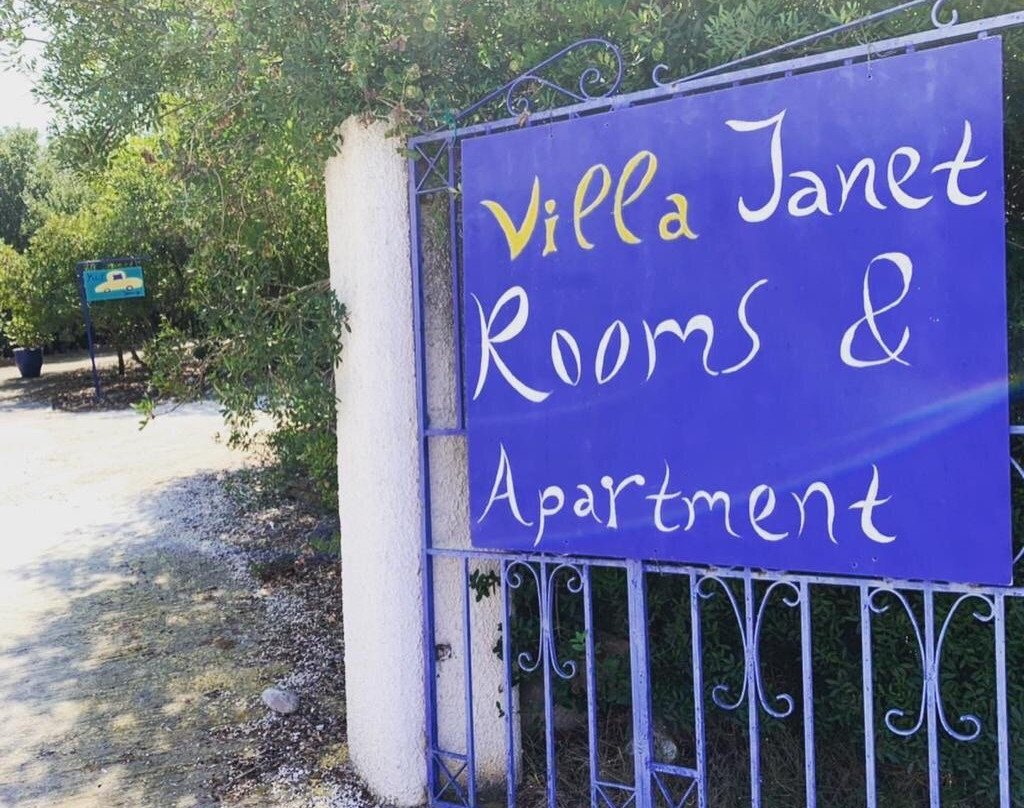 Villa Janet
Rooms &
Apartment